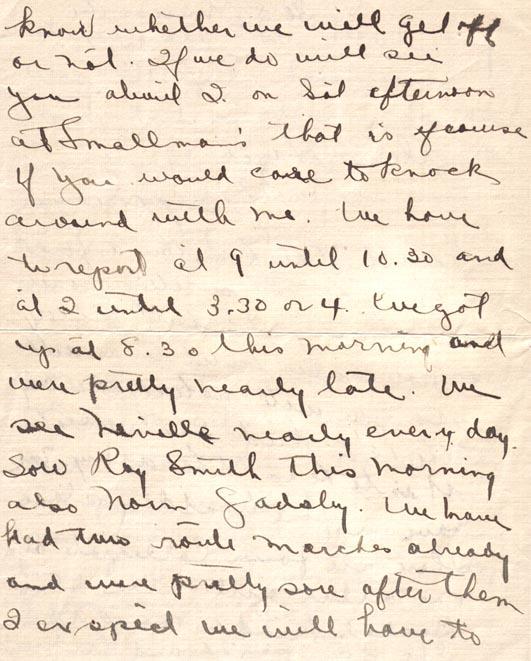 know whether we will get off
or not. If we do will see
you about 2 on Sat afternoon
at Smallman's that is of course
if you would care to knock
around with me. We have
to report at 9 until 10.30 and
at 2 until 3.30 or 4. We got
up at 8.30 this morning and
were pretty nearly late. We
see Neville nearly every day.
Saw Roy Smith this morning
also Norm Gadsby. We have
had two route marches already
and were pretty sore after them
I expect we will have to